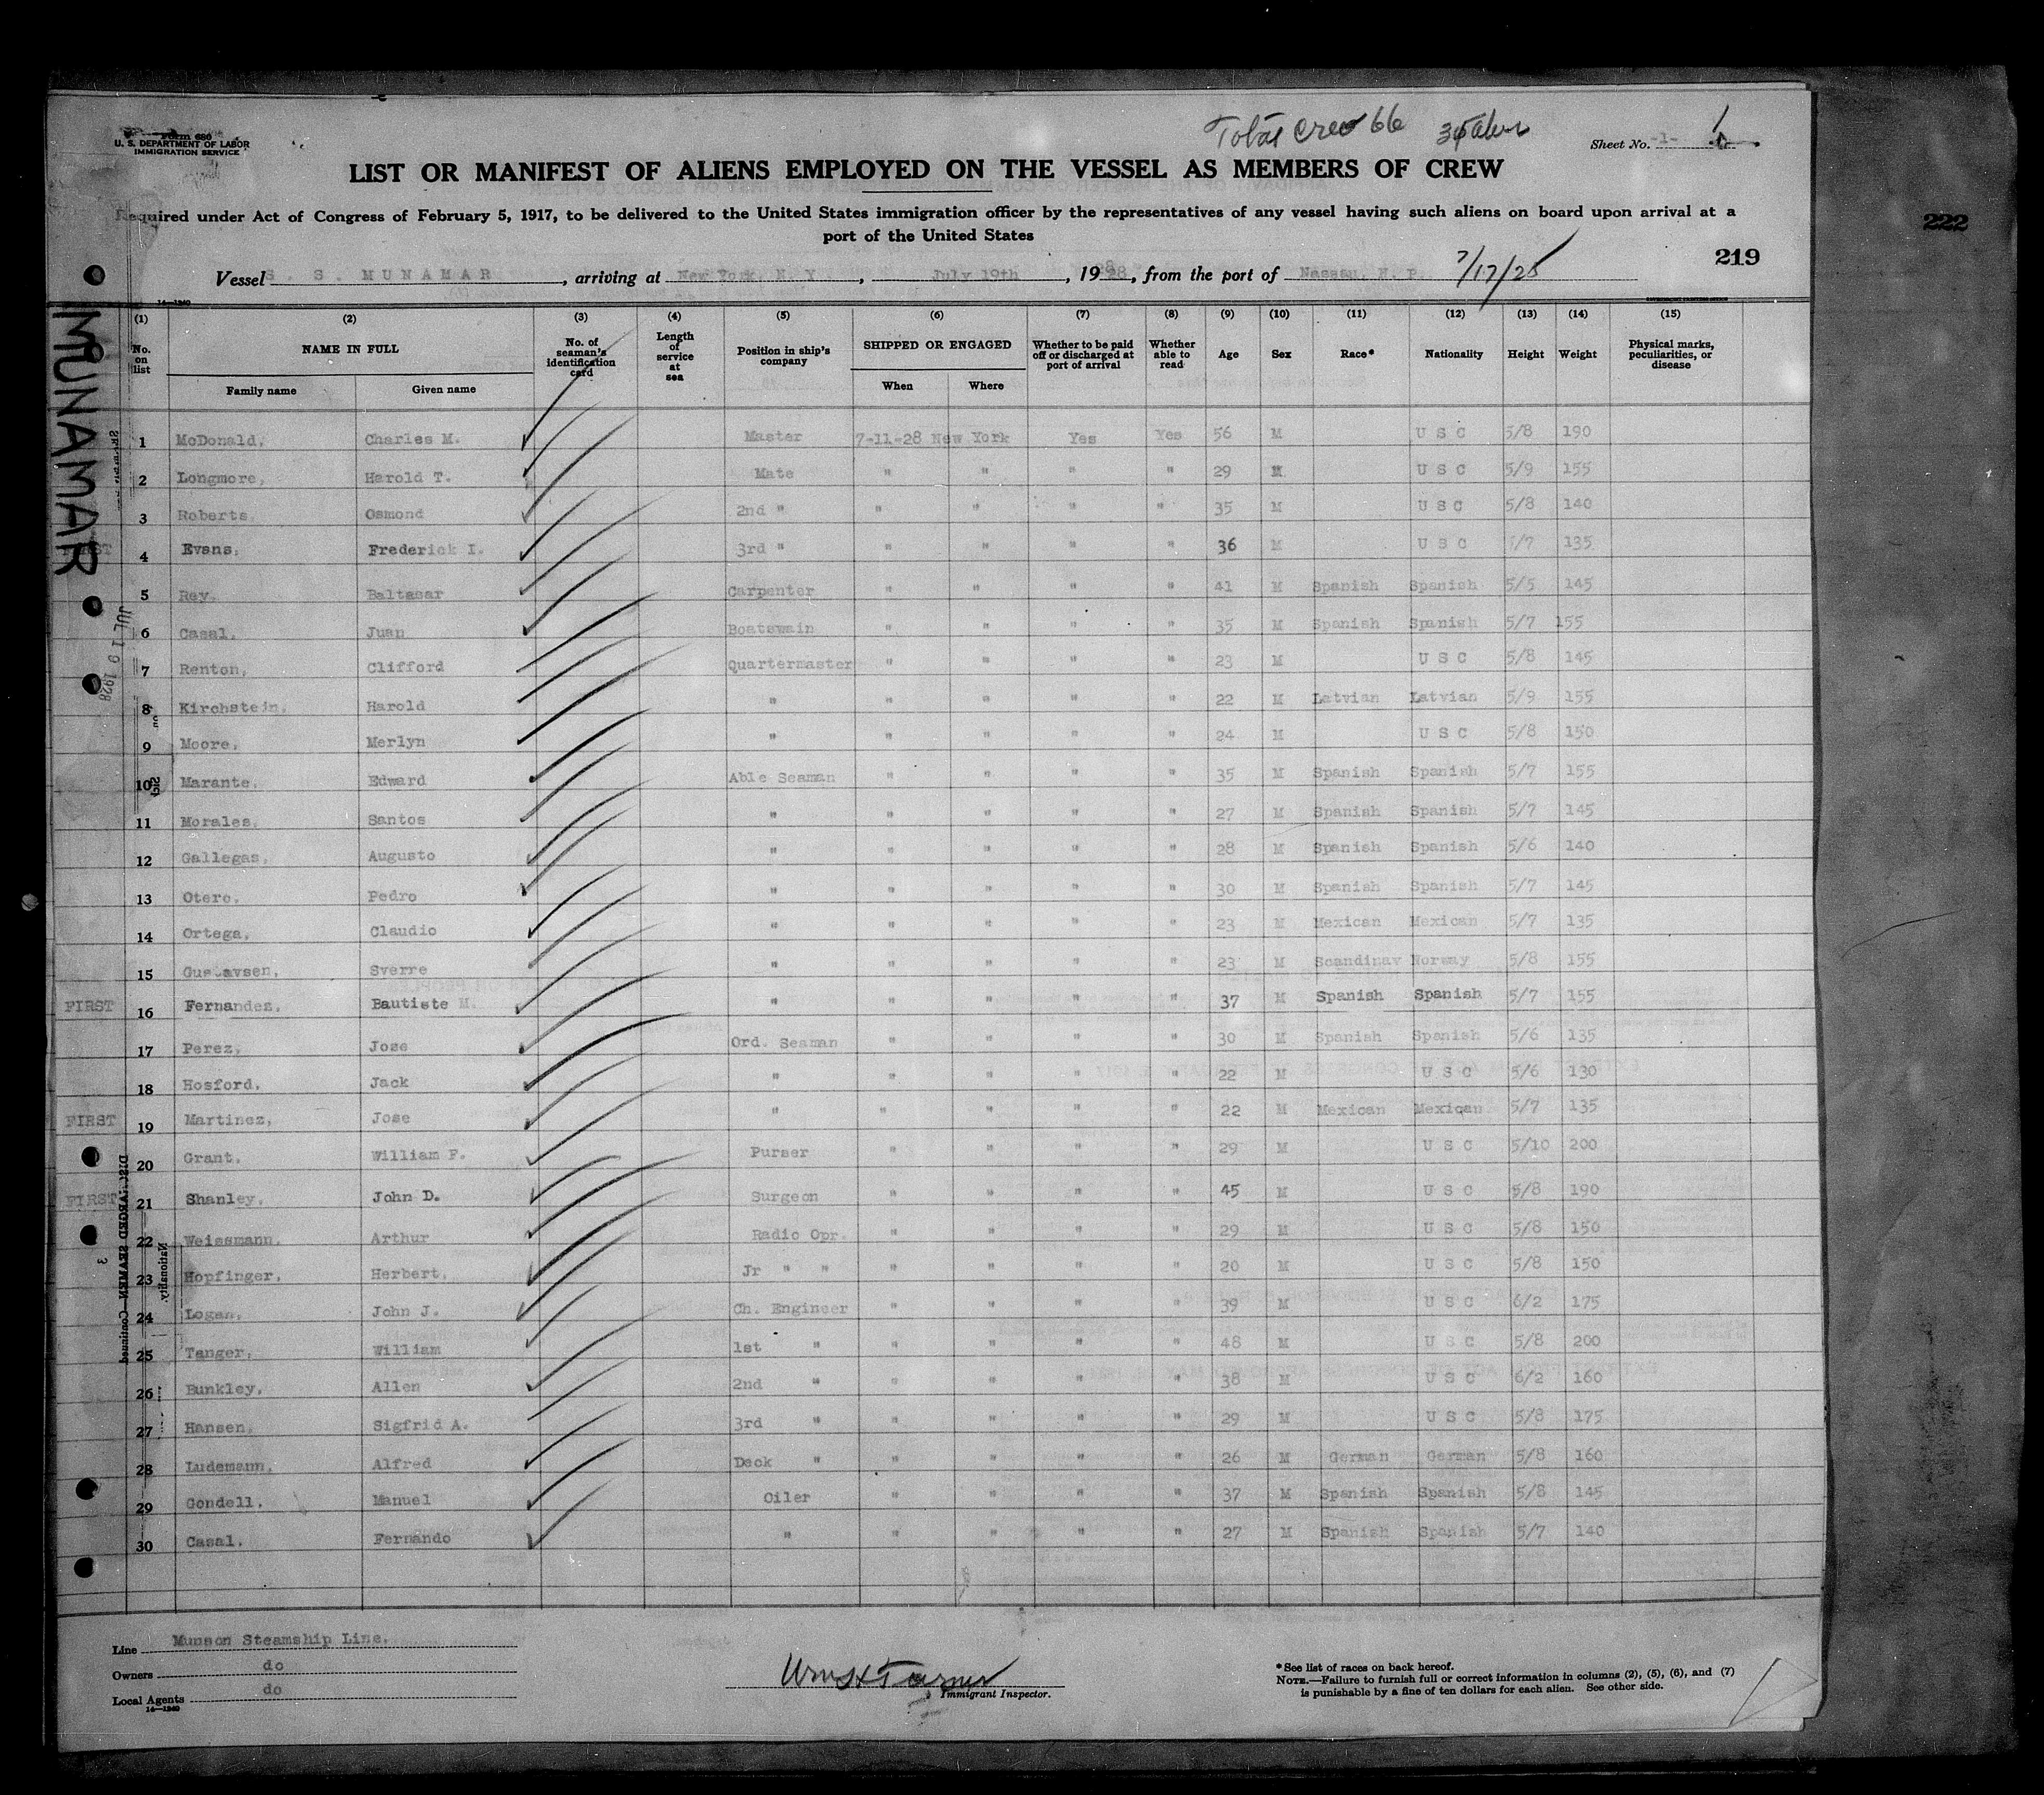 Total Crew 66
Form 680
U. S. DEPARTMENT OF LABOR
IMMIGRATION SERVICE
Sheet No. -1-
LIST OR MANIFEST OF ALIENS EMPLOYED ON THE VESSEL AS MEMBERS OF CREW
Required under Act of Congress of February 5, 1917, to be delivered to the United States immigration officer by the representatives of any vessel having such aliens on board upon arrival at a
port of the United States
222
219
Vessel S. S. MUNAMAR, arriving at New York, N. Y., July 19th, 1928, from the port of Nassau, N. P. 7/17/28
14—1240
MUNAMAR
JUL 19 1928
(1) (2) (3) (4) (5) (6) (7) (8) (9) (10) (11) (12) (13) (14) (15)
No. on list NAME IN FULL No. of seaman's identification card Length of service at sea Position in ship's company SHIPPED OR ENGAGED Whether to be paid off or discharged at port of arrival Whether able to read Age Sex Race* Nationality Height Weight Physical marks, peculiarities, or disease
Family name Given name When Where
1 McDonald, Charles M. Master 7-11-28 New York Yes Yes 56 M U S C 5/8 190
2 Longmore, Harold T. Mate " " " " 29 M U S C 5/9 155
3 Roberts, Osmond 2nd " " " " " 35 M U S C 5/8 140
FIRST 4 Evans, Frederick I. 3rd " " " " " 36 M U S C 5/7 135
5 Rey, Baltasar Carpenter " " " " 41 M Spanish Spanish 5/5 145
6 Casal, Juan Boatswain " " " " 35 M Spanish Spanish 5/7 155
7 Renton, Clifford Quartermaster " " " " 23 M U S C 5/8 145
8 Kirchstein, Harold " " " " " 22 M Latvian Latvian 5/9 155
9 Moore, Merlyn " " " " " 24 M U S C 5/8 150
10 Marante, Edward Able Seaman " " " " 35 M Spanish Spanish 5/7 155
11 Morales, Santos " " " " " 27 M Spanish Spanish 5/7 145
12 Gallegas, Augusto " " " " " 28 M Spanish Spanish 5/6 140
13 Otero, Pedro " " " " " 30 M Spanish Spanish 5/7 145
14 Ortega, Claudio " " " " " 23 M Mexican Mexican 5/7 135
15 Gustavsen, Sverre " " " " " 23 M Scandinav Norway 5/8 155
FIRST 16 Fernandez, Bautiste M. " " " " " 37 M Spanish Spanish 5/7 155
17 Perez, Jose Ord. Seaman " " " " 30 M Spanish Spanish 5/6 135
18 Hosford, Jack " " " " " 22 M U S C 5/6 130
FIRST 19 Martinez, Jose " " " " " 22 M Mexican Mexican 5/7 135
20 Grant, William F. Purser " " " " 29 M U S C 5/10 200
FIRST 21 Shanley, John D. Surgeon " " " " 45 M U S C 5/8 190
22 Weissmann, Arthur Radio Opr. " " " " 29 M U S C 5/8 150
23 Hopfinger, Herbert, Jr " " " " " " 20 M U S C 5/8 150
24 Logan, John J. Ch. Engineer " " " " 39 M U S C 6/2 175
25 Tanger, William 1st " " " " " 48 M U S C 5/8 200
26 Bunkley, Allen 2nd " " " " " 38 M U S C 6/2 160
27 Hansen, Sigfrid A. 3rd " " " " " 29 M U S C 5/8 175
28 Ludemann, Alfred Deck " " " " " 26 M German German 5/8 160
29 Gondell, Manuel Oiler " " " " 37 M Spanish Spanish 5/8 145
30 Casal, Fernando " " " " " 27 M Spanish Spanish 5/7 140
DISCHARGED SEAMEN—Continued
Nationality.
3
Line Munson Steamship Line.
Owners do
Local Agents do
14—1240
Wm H Turner
Immigrant Inspector.
*See list of races on back hereof.
NOTE.—Failure to furnish full or correct information in columns (2), (5), (6), and (7)
is punishable by a fine of ten dollars for each alien. See other side.